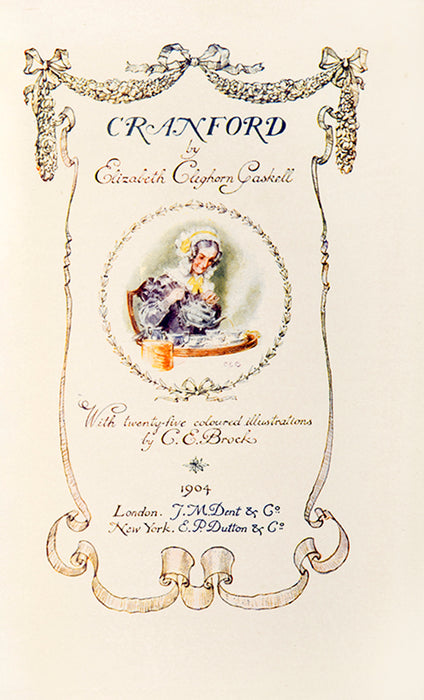 CRANFORD
by
Elizabeth Cleghorn Gaskell
C E B
With twenty-five coloured illustrations
by C. E. Brock
1904
London. J. M. Dent & Co
New York. E. P. Dutton & Co